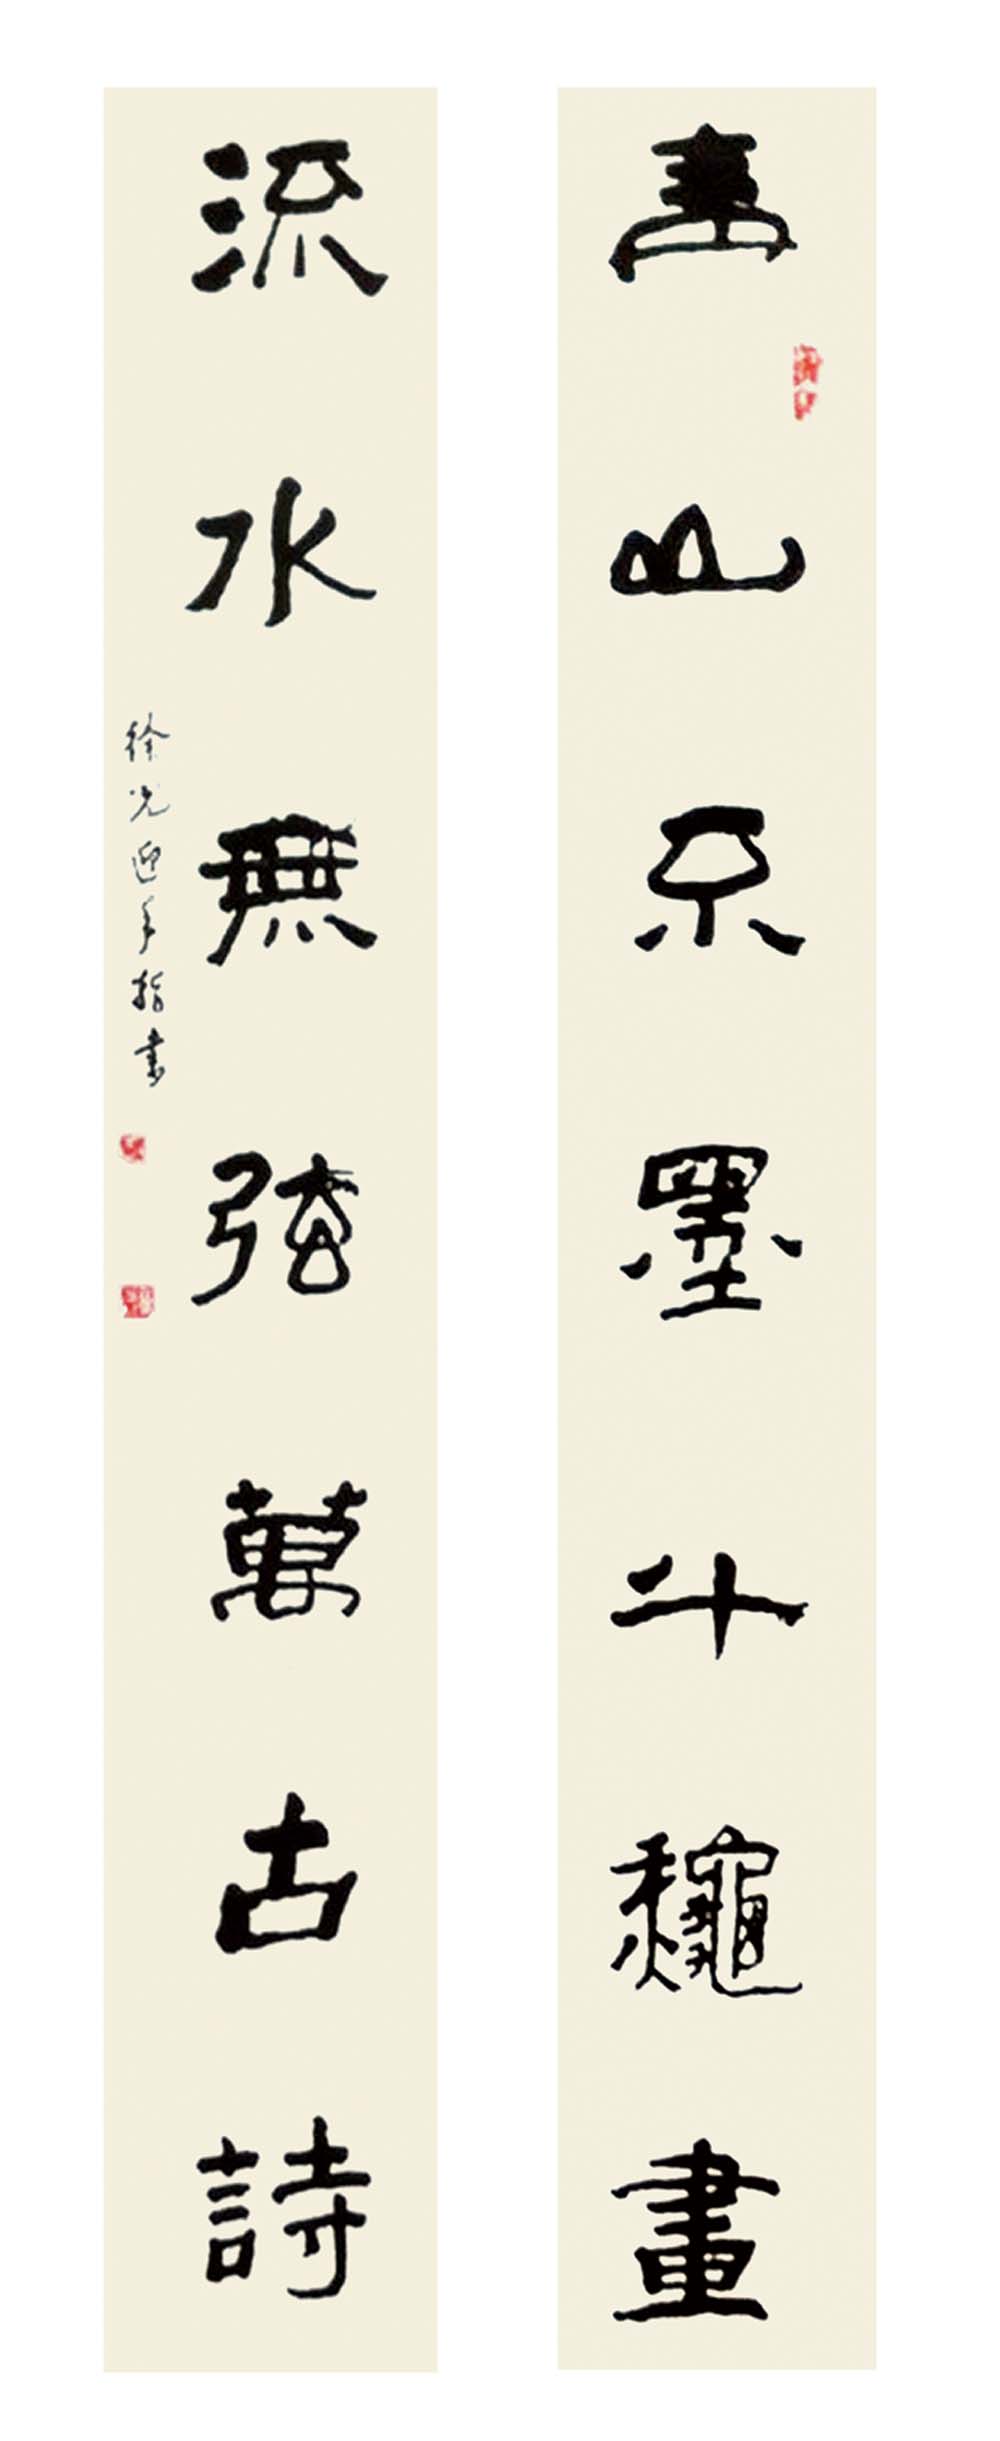 青山不墨千�龝畫
流水無弦萬古詩
徐光迎手指書